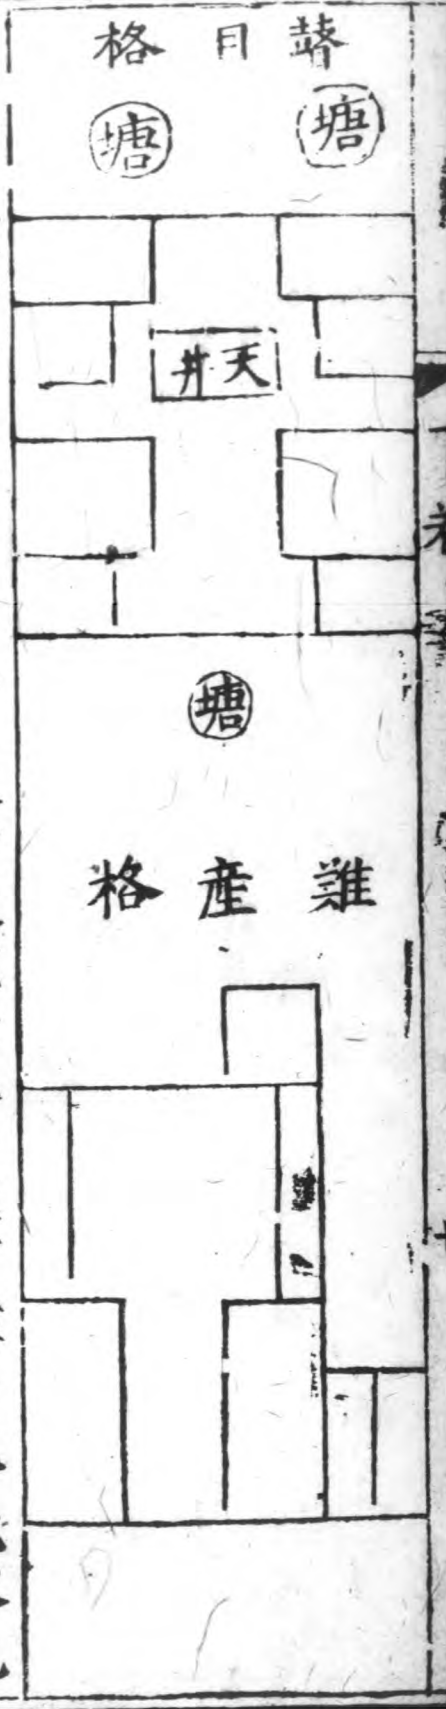 瞽目格
塘 塘
天井
塘
難產格